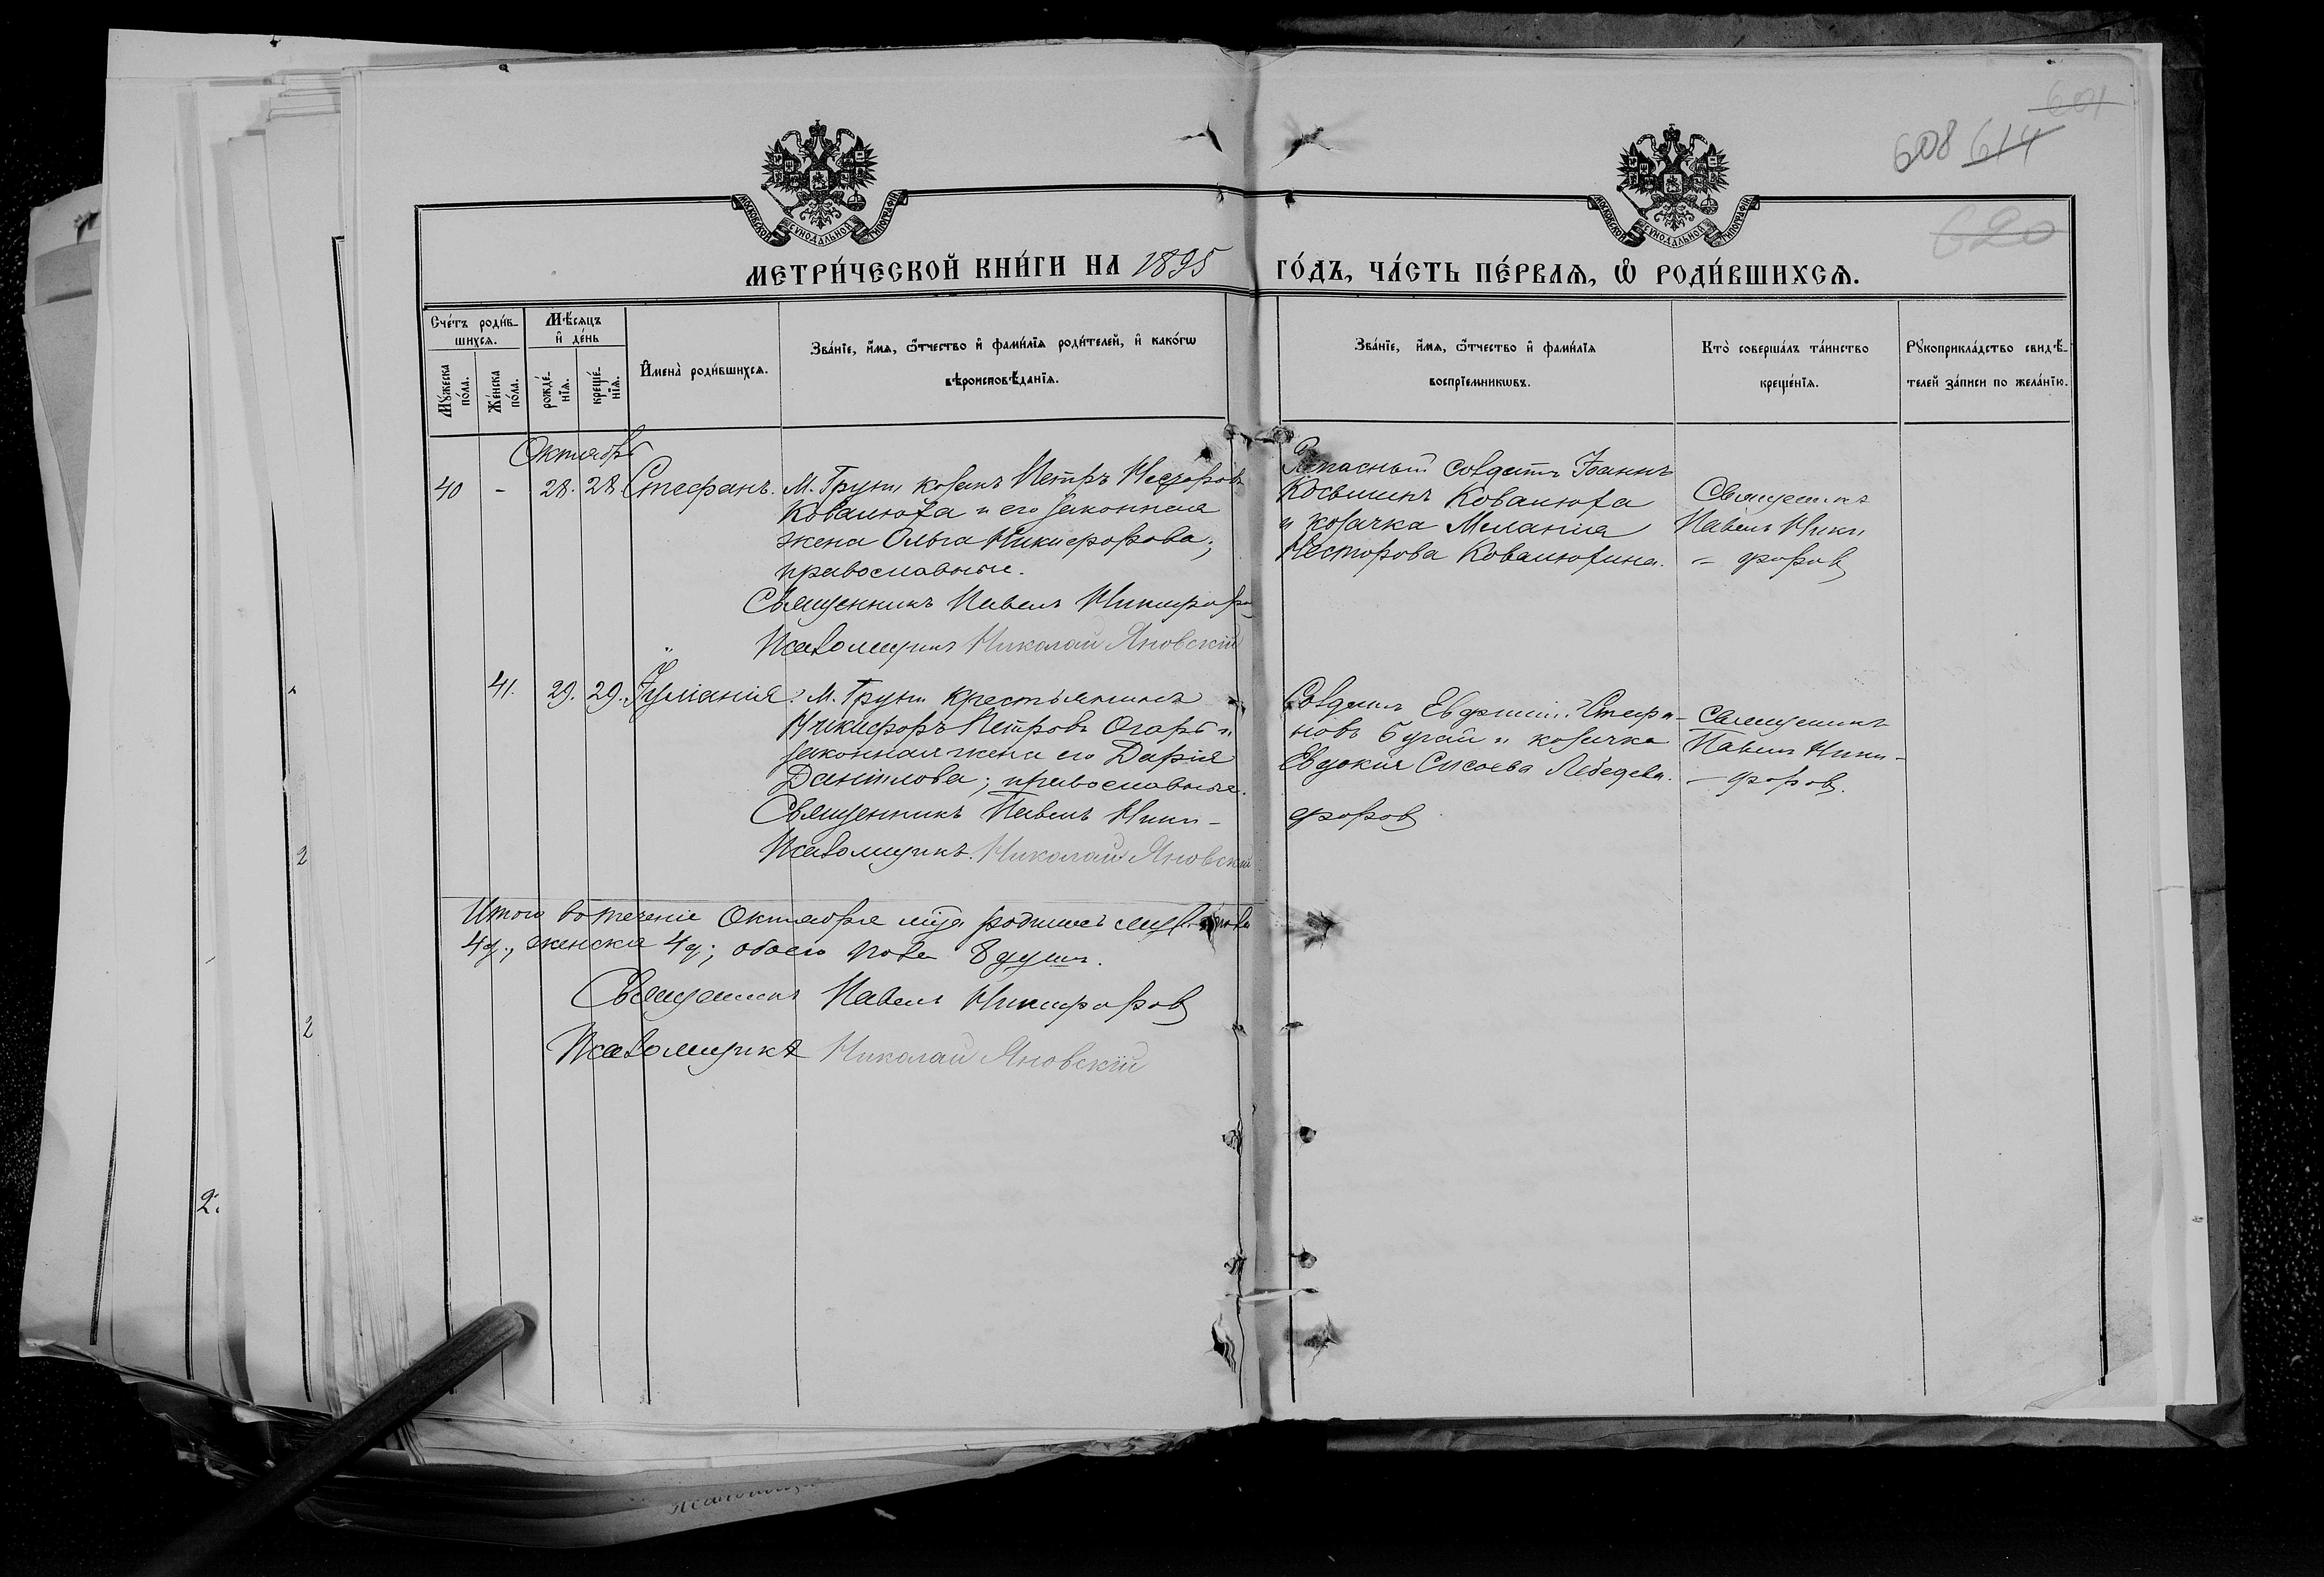 601
608 614
620
МОСКОВСКОЙ СѴНОДАЛЬНОЙ ТИПОГРАФІИ
МОСКОВСКОЙ СѴНОДАЛЬНОЙ ТИПОГРАФІИ
МЕТРИ́ЧЕСКОЙ КНИ́ГИ НА 1895 ГО́ДЪ, ЧА́СТЬ ПЕ́РВАѦ, Ѽ РОДИ́ВШИХСѦ.
Сче́тъ роди́в-
шихсѧ.
Мѣ́сѧцъ
и҆ де́нь
Мꙋ́жеска
по́ла.
Же́нска
по́ла.
рожде́-
нїѧ.
креще́-
нїѧ.
И҆мена̀ роди́вшихсѧ.
Зва́нїе, и҆́мѧ, ѻ҆́тчество и҆ фами́лїѧ роди́телей, и҆ како́гѡ
вѣроисповѣ́данїѧ.
Зва́нїе, и҆́мѧ, ѻ҆́тчество и҆ фами́лїѧ
воспрїе́мникѡвъ.
Кто̀ соверша́лъ та́инство
креще́нїѧ.
Рꙋкоприкла́дство свидѣ́-
телей за́писи по жела́нїю.
Октябрь
40 - 28. 28 Стефанъ.
М. Груни козакъ Петръ Несторовъ
Ковалюха и его законная
жена Ольга Никифорова;
православные.
Священникъ Павелъ Никифоров
Псаломщикъ Николай Яновскій
Запасный солдатъ Іоаннъ
Косьминъ Ковалюха
и козачка Меланія
Несторова Ковалюхина.
Священникъ
Павелъ Ники
- форов
41. 29. 29. Іуліанія.
М. Груни крестьянинъ
Никифоръ Петровъ Огарь и
законная жена его Дарія
Даніилова; православные.
Священникъ Павелъ Ники-
форов
Псаломщикъ Николай Яновскій
Солдатъ Евфимій Стефа-
новъ Бугай и козачка
Евдокія Сысоева Лебедева.
Священникъ
Павелъ Ники-
- форов.
Итого въ теченіе Октября м-ца родилось муж. пола
4 д., женска 4 д; обоего пола 8 душъ.
Священникъ Павелъ Никифоров
Псаломщикъ Николай Яновскій
2
2
2.